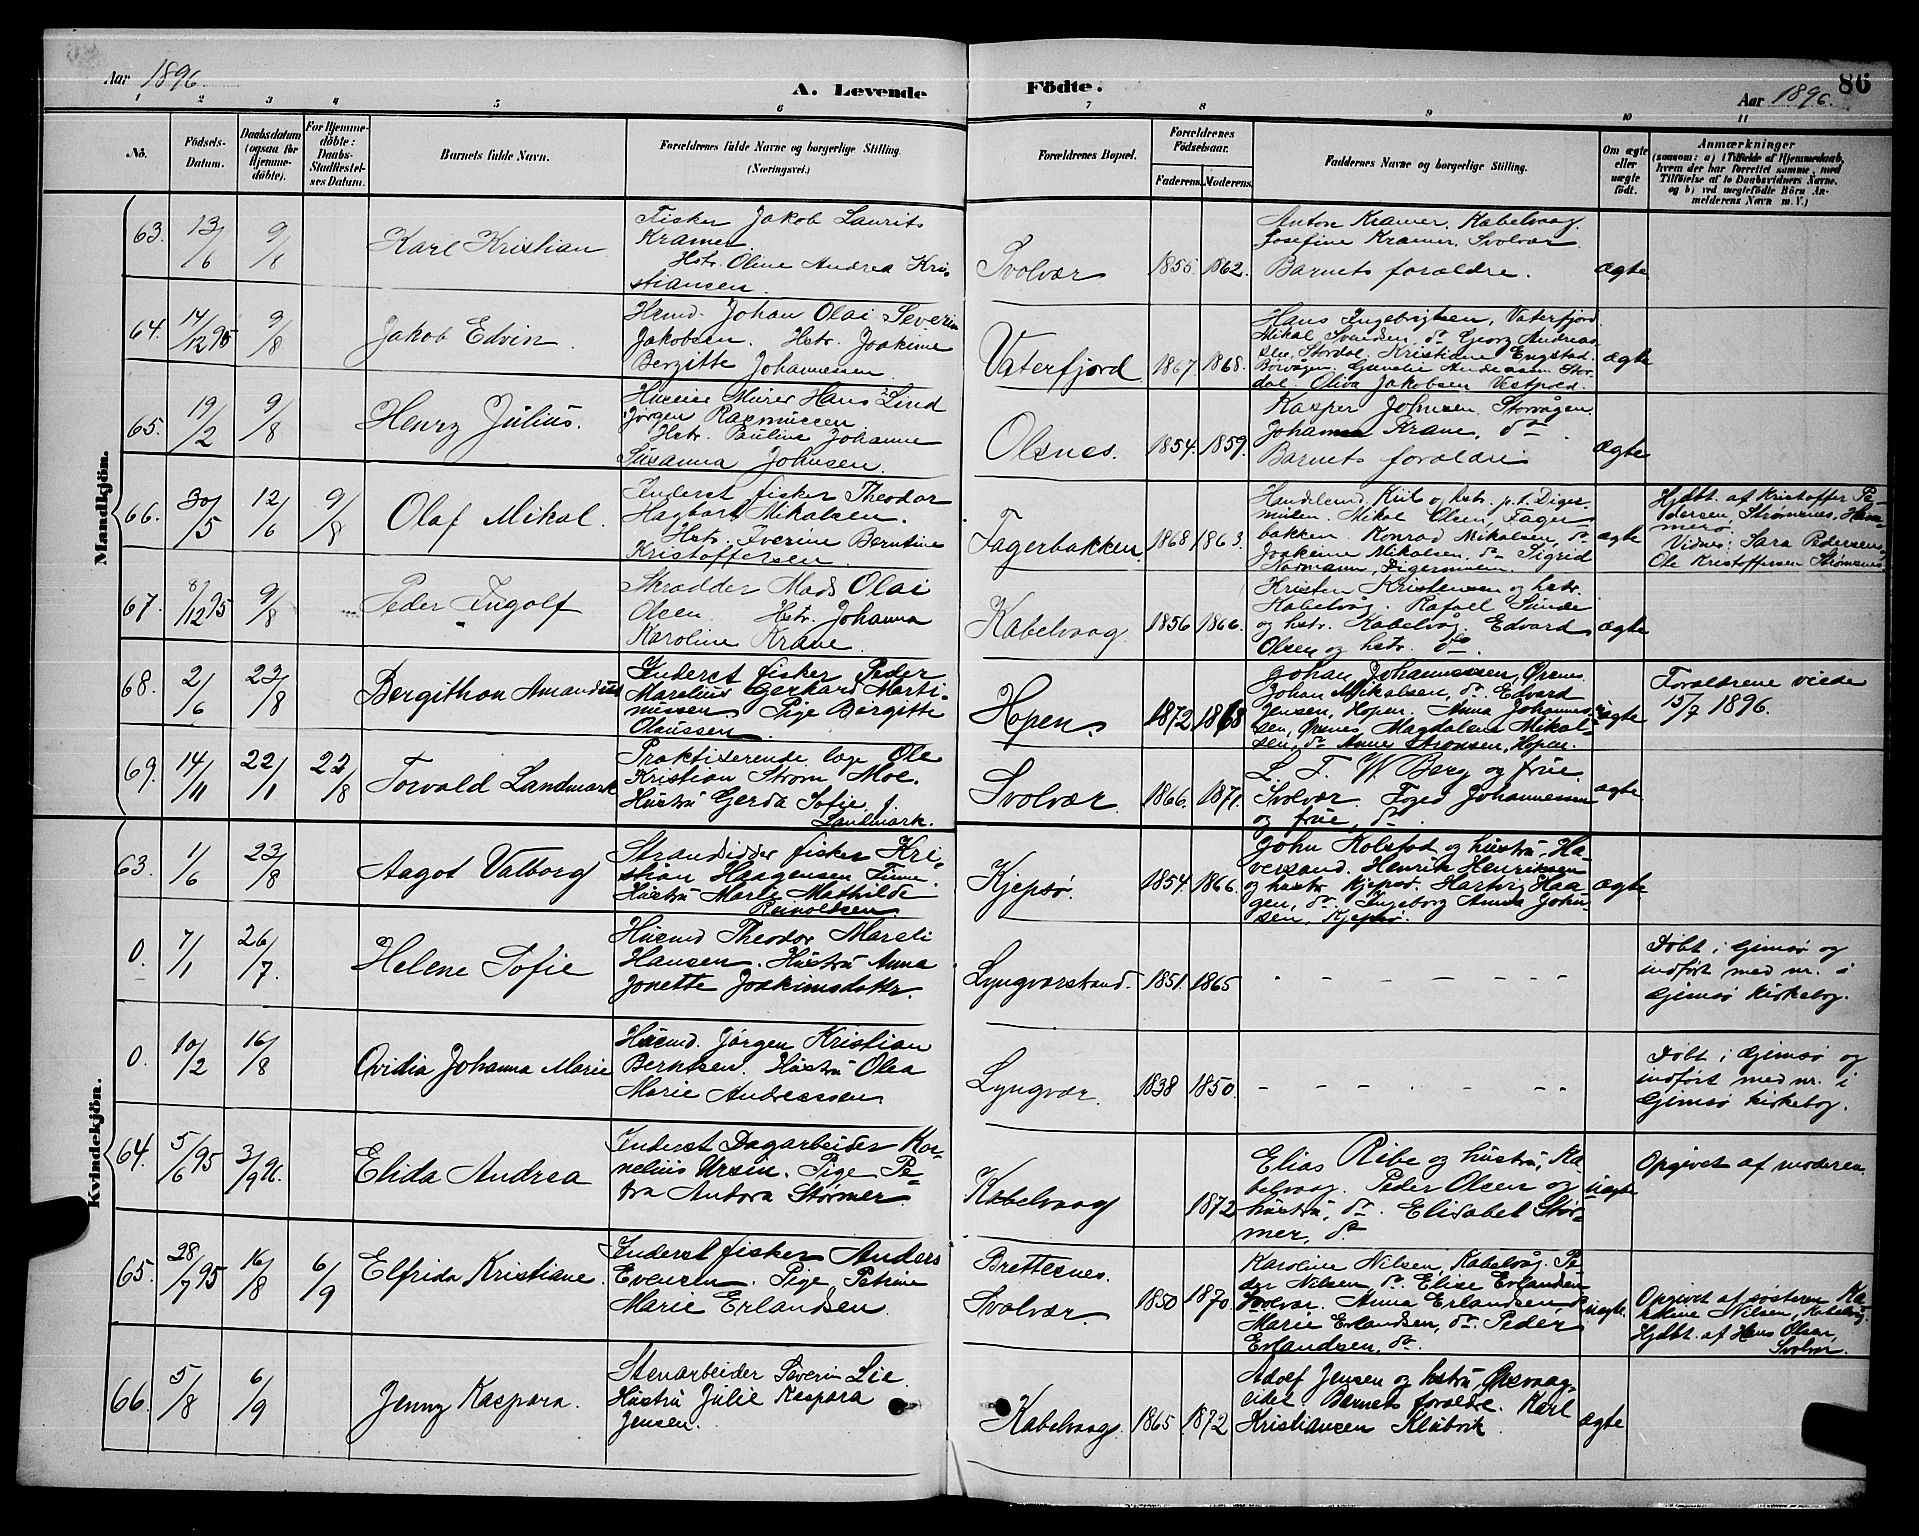 Aar 1896.
A. Levende
Födte.
86
Aar 1896.
1 2 3 4 5 6 7 8 9 10 11
No.
Födsels-
Datum.
Daabsdatum
(ogsaa for
Hjemme-
döbte).
For Hjemme-
döbte:
Daabs-
Stadfæstel-
ses Datum.
Barnets fulde Navn.
Forældrenes fulde Navne og borgerlige Stilling.
(Næringsvei.)
Forældrenes Bopæl.
Forældrenes
Födselsaar.
Faderens. Moderens.
Faddernes Navne og borgerlige Stilling.
Om ægte
eller
uægte
födt.
Anmærkninger
(saasom: a) i Tilfælde af Hjemmedaab,
hvem der har forrettet samme, med
Tilföielse af to Daabsvidners Navne.
og b) ved uægtefödte Börn An-
melderens Navn m. V.)
Mandkjön.
63. 13/6 9/8
Karl Kristian
Fisker Jakob Laurits
Kramer.
Hstr. Oline Andrea Kri-
stiansen.
Svolvær 1855. 1862.
Anton Kramer, Kabelvaag.
Josefine Kramer, Svolvær
Barnets forældre.
ægte
64. 14/12 95 9/8
Jakob Edvin
Husmd. Johan Olai Severin
Jakobsen. Hstr. Joakime
Bergitte Johannessen
Vaterfjord 1867 1868.
Hans Ingebrigtsen, Vaterfjord.
Mikal Svendsen, do Georg Andreas-
sen, Stordal, Kristiane Engstad.
Børvågen. Gunelie Andreasen Stor-
dal. Oliva Jakobsen Vestpold.
ægte
65. 19/2 9/8
Henry Julius.
Huseier Murer Hans Lind
Jörgen Rasmussen
Hstr. Pauline Johanne
Susanna Johnsen.
Olsnes. 1854. 1859.
Kasper Johnsen, Storvågen
Johanna Krane, do
Barnets forældre
ægte
66. 30/5 12/6 9/8
Olaf Mikal.
Inderst fisker Theodor
Hagbart Mikalsen.
Hstr. Iverine Berntine
Kristoffersen
Fagerbakken 1868 1863.
Handelsmd. Kiil o hstr. p.t. Diger-
mulen. Mikal Olsen, Fager
bakken. Konrad Mikalsen, do
Joakime Mikalsen, do Sigrid
Normann, Digermulen.
ægte
Hjdbt. af Kristoffer Pe-
dersen Strømsnes, Ham-
merø
Vidner: Sara Pedersen
Ole Kristoffersen Strømsnes.
67. 8/12 95 9/8
Peder Ingolf
Skrædder Mads Olai
Olsen Hstr. Johanna
Karoline Krane.
Kabelvaag. 1856 1866.
Kristen Kristensen og hstr.
Kabelvåg. Rafael Lunde
og hstr. Kabelvåg Edvard
Olsen og hstr. do
ægte
68. 2/6 23/8
Bergithon Amandus
Inderst fisker Peder
Marelius Gerhard Marti-
nussen. Pige Bergitte
Olaussen.
Hopen. 1872 1868
Johan Johannessen, Ørsnes
Johan Mikalsen, do Edvard
Jensen, Hopen. Anna Johannes-
sen, Ørsnes Magdalena Mikal-
sen, do Anne Aronsen, Hopen.
uægte
Forældrene viede
15/7 1896.
69. 14/11 22/1 22/8
Torvald Landmark
Praktiserende læge Ole
Kristian Strøm Moe.
Hustru Gerda Sofie J.
Landmark.
Svolvær 1866. 1871.
L. F. W. Berg og frue
Svolvær. Foged Johannessen
og frue, do.
ægte
Kvindekjön.
63. 1/6 23/8
Aagot Valborg
Strandsidder fisker Kri-
stian Haagensen Finne.
Hustru Marli Mathilde
Reinoldsen
Kjepsø. 1854 1866.
John Kolstad og hustru, Ha-
versand. Henrik Henriksen
og hustr. Kjepsø. Hartvig Haa-
gen, do. Ingeborg Anna John-
sen, Kjepsø.
ægte
0. 7/1 26/7
Helene Sofie
Husmd Theodor Mareli
Hansen. Hustru Anna
Jonette Joakimsdattr.
Lyngværstrand. 1851. 1865
Døbt i Gimsø og
indført med nr. i
Gimsø kirkebog.
0. 10/2 16/8
Ovidia Johanna Marie
Husmd. Jørgen Kristian
Berntsen. Hustru Olea
Marie Andreassen
Lyngvær. 1838 1850.
Døbt i Gimsø og
indført med nr. i
Gimsø kirkebog.
64. 5/6 95 3/9 96.
Elida Andrea
Inderst Dagarbeider Kor-
nelius Ursin. Pige Pe-
tra Andora Størmer.
Kabelvaag 1872
Elias Ribe og hustru, Ka-
belvaag. Peder Olsen og
hustru, do. Elisabet Stør-
mer, do
uægte
Opgivet af moderen.
65. 28/7 95 16/8 6/9
Elfrida Kristiane.
Inderst fisker Anders
Evensen. Pige Petrine
Marie Erlandsen.
Brettesnes.
Svolvær. 1850 1870.
Karoline Nilsen, Kabelvåg. Pe-
der Nilsen, do Elise Erlandsen
Svolvær. Anna Erlandsen, do
Marie Erlandsen, do. Peder
Erlandsen, do.
uægte
Opgivet af søsteren Ka-
Nilsen, Kabelvåg
Hjdbt. af Hans Olsen,
Svolvær.
66. 5/8 6/9
Jenny Kaspara.
Stenarbeider Severin Lie.
Hustru Julie Kaspara
Jensen.
Kabelvaag 1865 1872
Adolf Jensen og hstru, Ørsvaag-
eidet. Barnets forældre. Karl
Kristiansen Klubvik
ægte